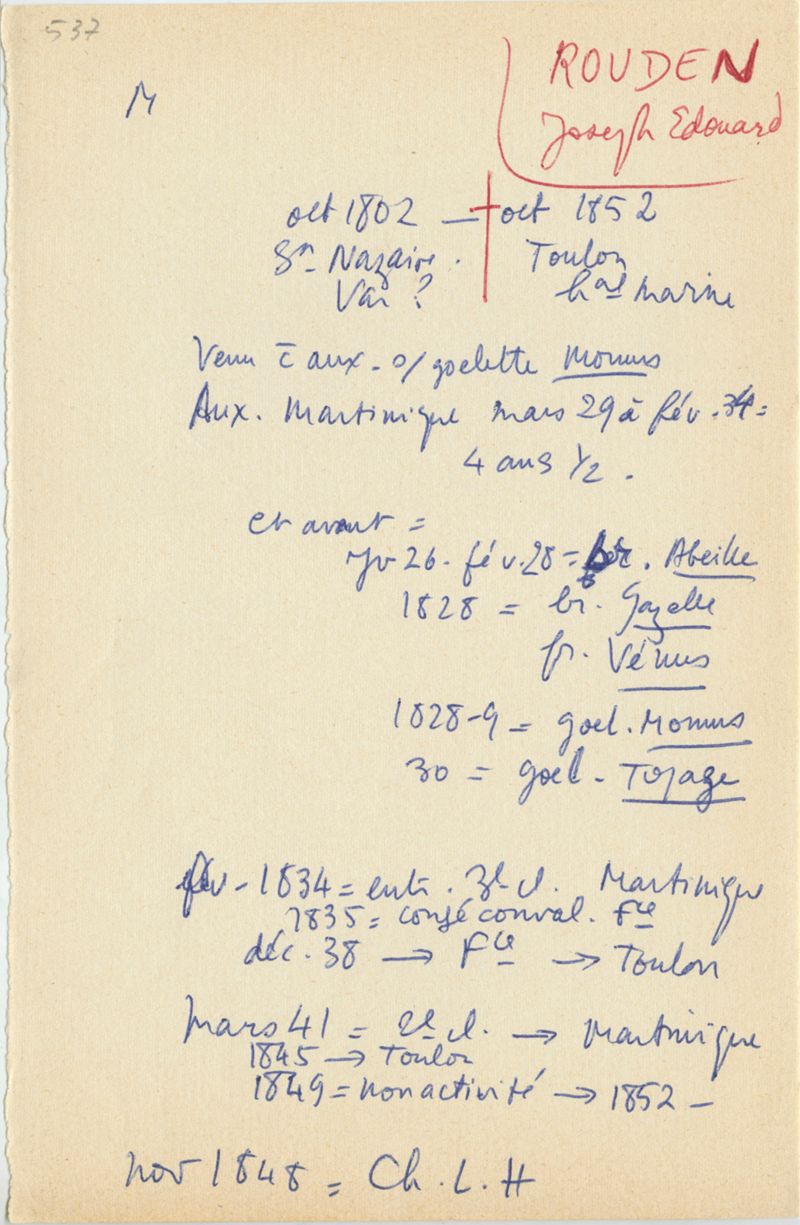 537
M
ROUDEN
Joseph Edouard
oct 1802 — † oct 1852
St Nazaire. Toulon
Var ? hal marine
Venu c̄ aux. s/ goelette Momus
Aux. Martinique mars 29 à fév. 34 =
4 ans 1/2.
et avant =
26. fév. 28 = br. Abeille
1828 = br. Gazelle
fr. Vénus
1828-9 = goel. Momus
30 = goel. Topaze
fév - 1834 = ent. 3e cl. Martinique
1835 = congé conval. Fce
déc. 38 → Fce → Toulon
Mars 41 = 2e cl. → Martinique
1845 → Toulon
1849 = non activité → 1852 -
nov 1848 = Ch. L. H